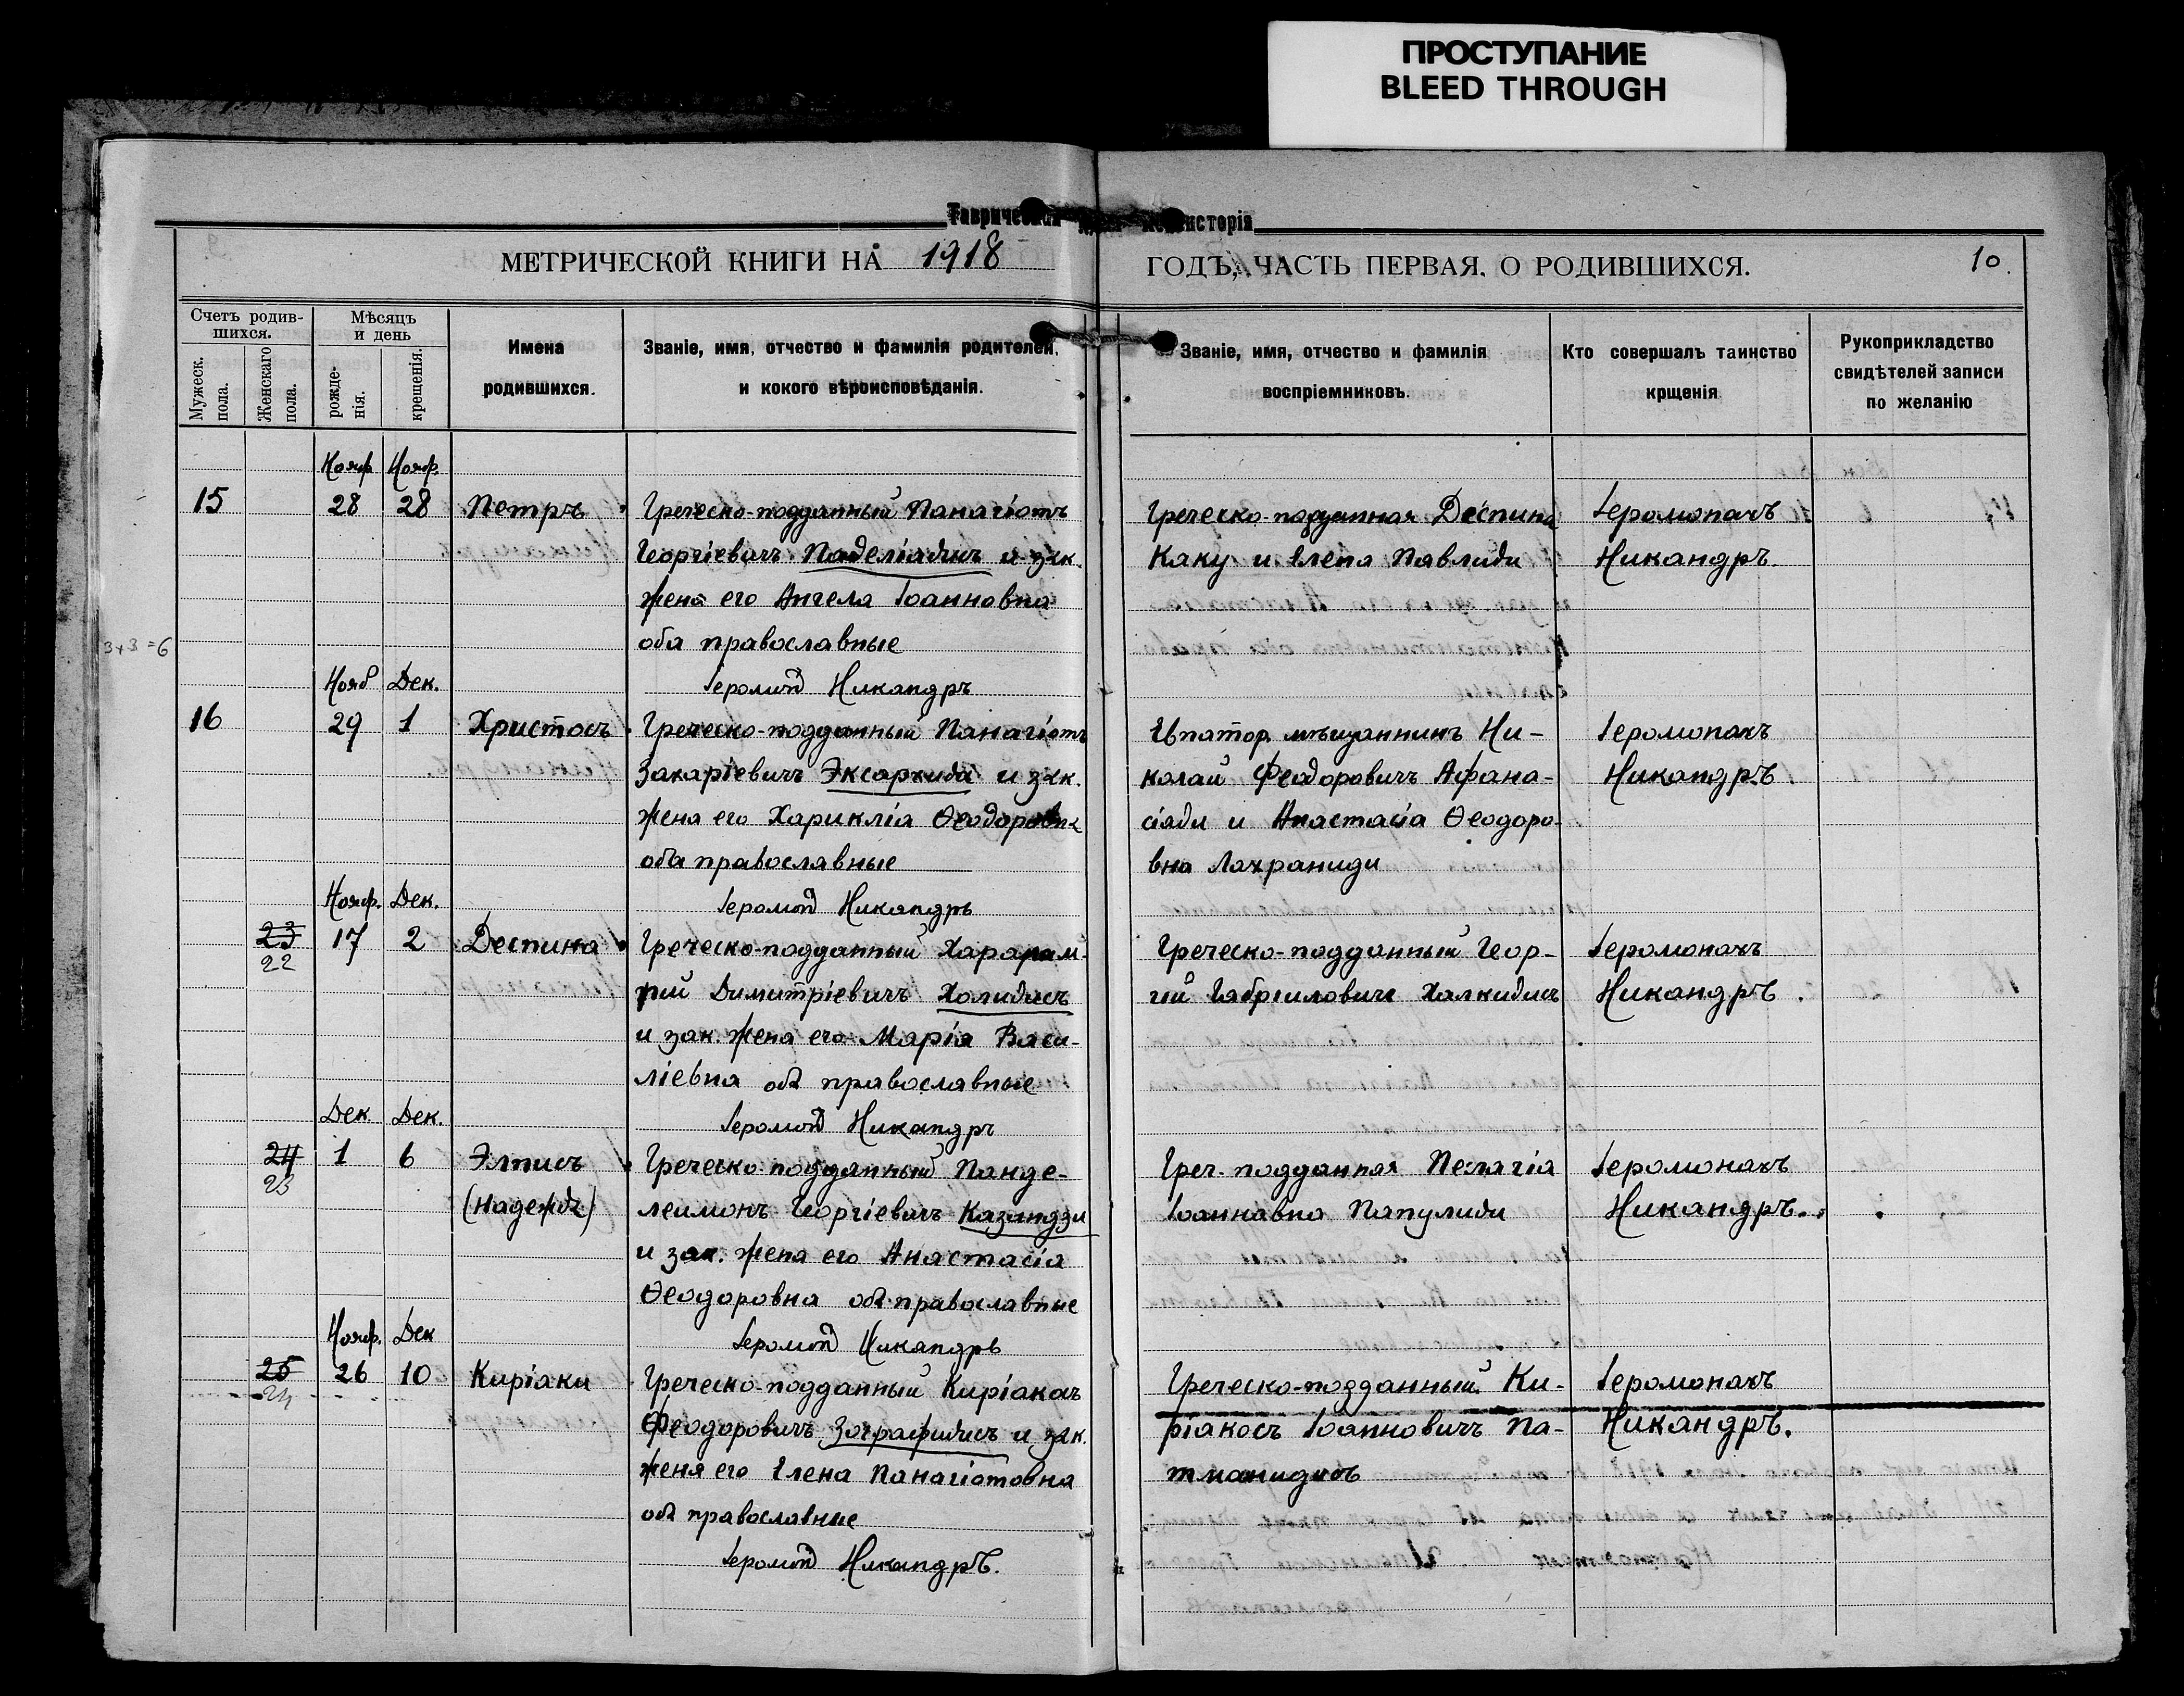 ПРОСТУПАНИЕ
BLEED THROUGH
Таврическая исторія
МЕТРИЧЕСКОЙ КНИГИ НА 1918
ГОДЪ, ЧАСТЬ ПЕРВАЯ. О РОДИВШИХСЯ.
10.
Счетъ родив-
шихся.
Мужеск.
пола.
Женскаго
пола.
Мѣсяцъ
и день
рожде-
нія.
крещенія.
Имена
родившихся.
Званіе, имя, отчество и фамилія родителей,
и кокого вѣроисповѣданія.
Званіе, имя, отчество и фамилія
воспріемниковъ.
Кто совершалъ таинство
крщенія
Рукоприкладство
свидѣтелей записи
по желанію
3+3=6
Нояф Нояф.
15 28 28 Петръ
Греческо-подданный Панагіотъ
Георгіевичъ Паделіадисъ и зак.
жена его Ангела Іоанновна
оба православные
Іеромон Никандръ
Греческо-подданная Деспина
Каку и Елена Павлиди
Іеромонахъ
Никандръ
Нояб Дек.
16 29 1 Христосъ
Греческо-подданный Панагіотъ
Захаріевичъ Эксархиди и зак.
жена его Хариклія Ѳеодоровна
оба православные
Іеромон Никандръ
Евпатор. мѣщаннинъ Ни-
колай Феодоровичъ Афана-
сіяди и Анастасія Ѳеодоро-
вна Лахраниди
Іеромонахъ
Никандръ.
Нояф. Дек.
23 17 2 Деспина
22
Греческо-подданный Харалам-
пій Димитріевичъ Холидисъ
и зак. жена его Марія Васи-
ліевна оба православные
Іеромон Никандръ
Греческо-подданный Геор-
гій Габріиловичъ Халкидисъ
Іеромонахъ
Никандръ.
Дек. Дек.
24 1 6 Элписъ
23
(Надежда)
Греческо-подданный Панде-
леимонъ Георгіевичъ Казандзи
и зак. жена его Анастасія
Ѳеодоровна оба православные
Іеромон Никандръ
Греч. подданная Пелагія
Іоанновна Папулиди
Іеромонахъ
Никандръ.
Нояф. Дек
25 26 10 Киріаки
24
Греческо-подданный Киріакосъ
Феодоровичъ Зографидисъ и зак.
жена его Елена Панагіотовна
оба православные
Іеромон Никандръ.
Греческо-подданный Ки-
ріакосъ Іоанновичъ Па-
Іеромонахъ
Никандръ.